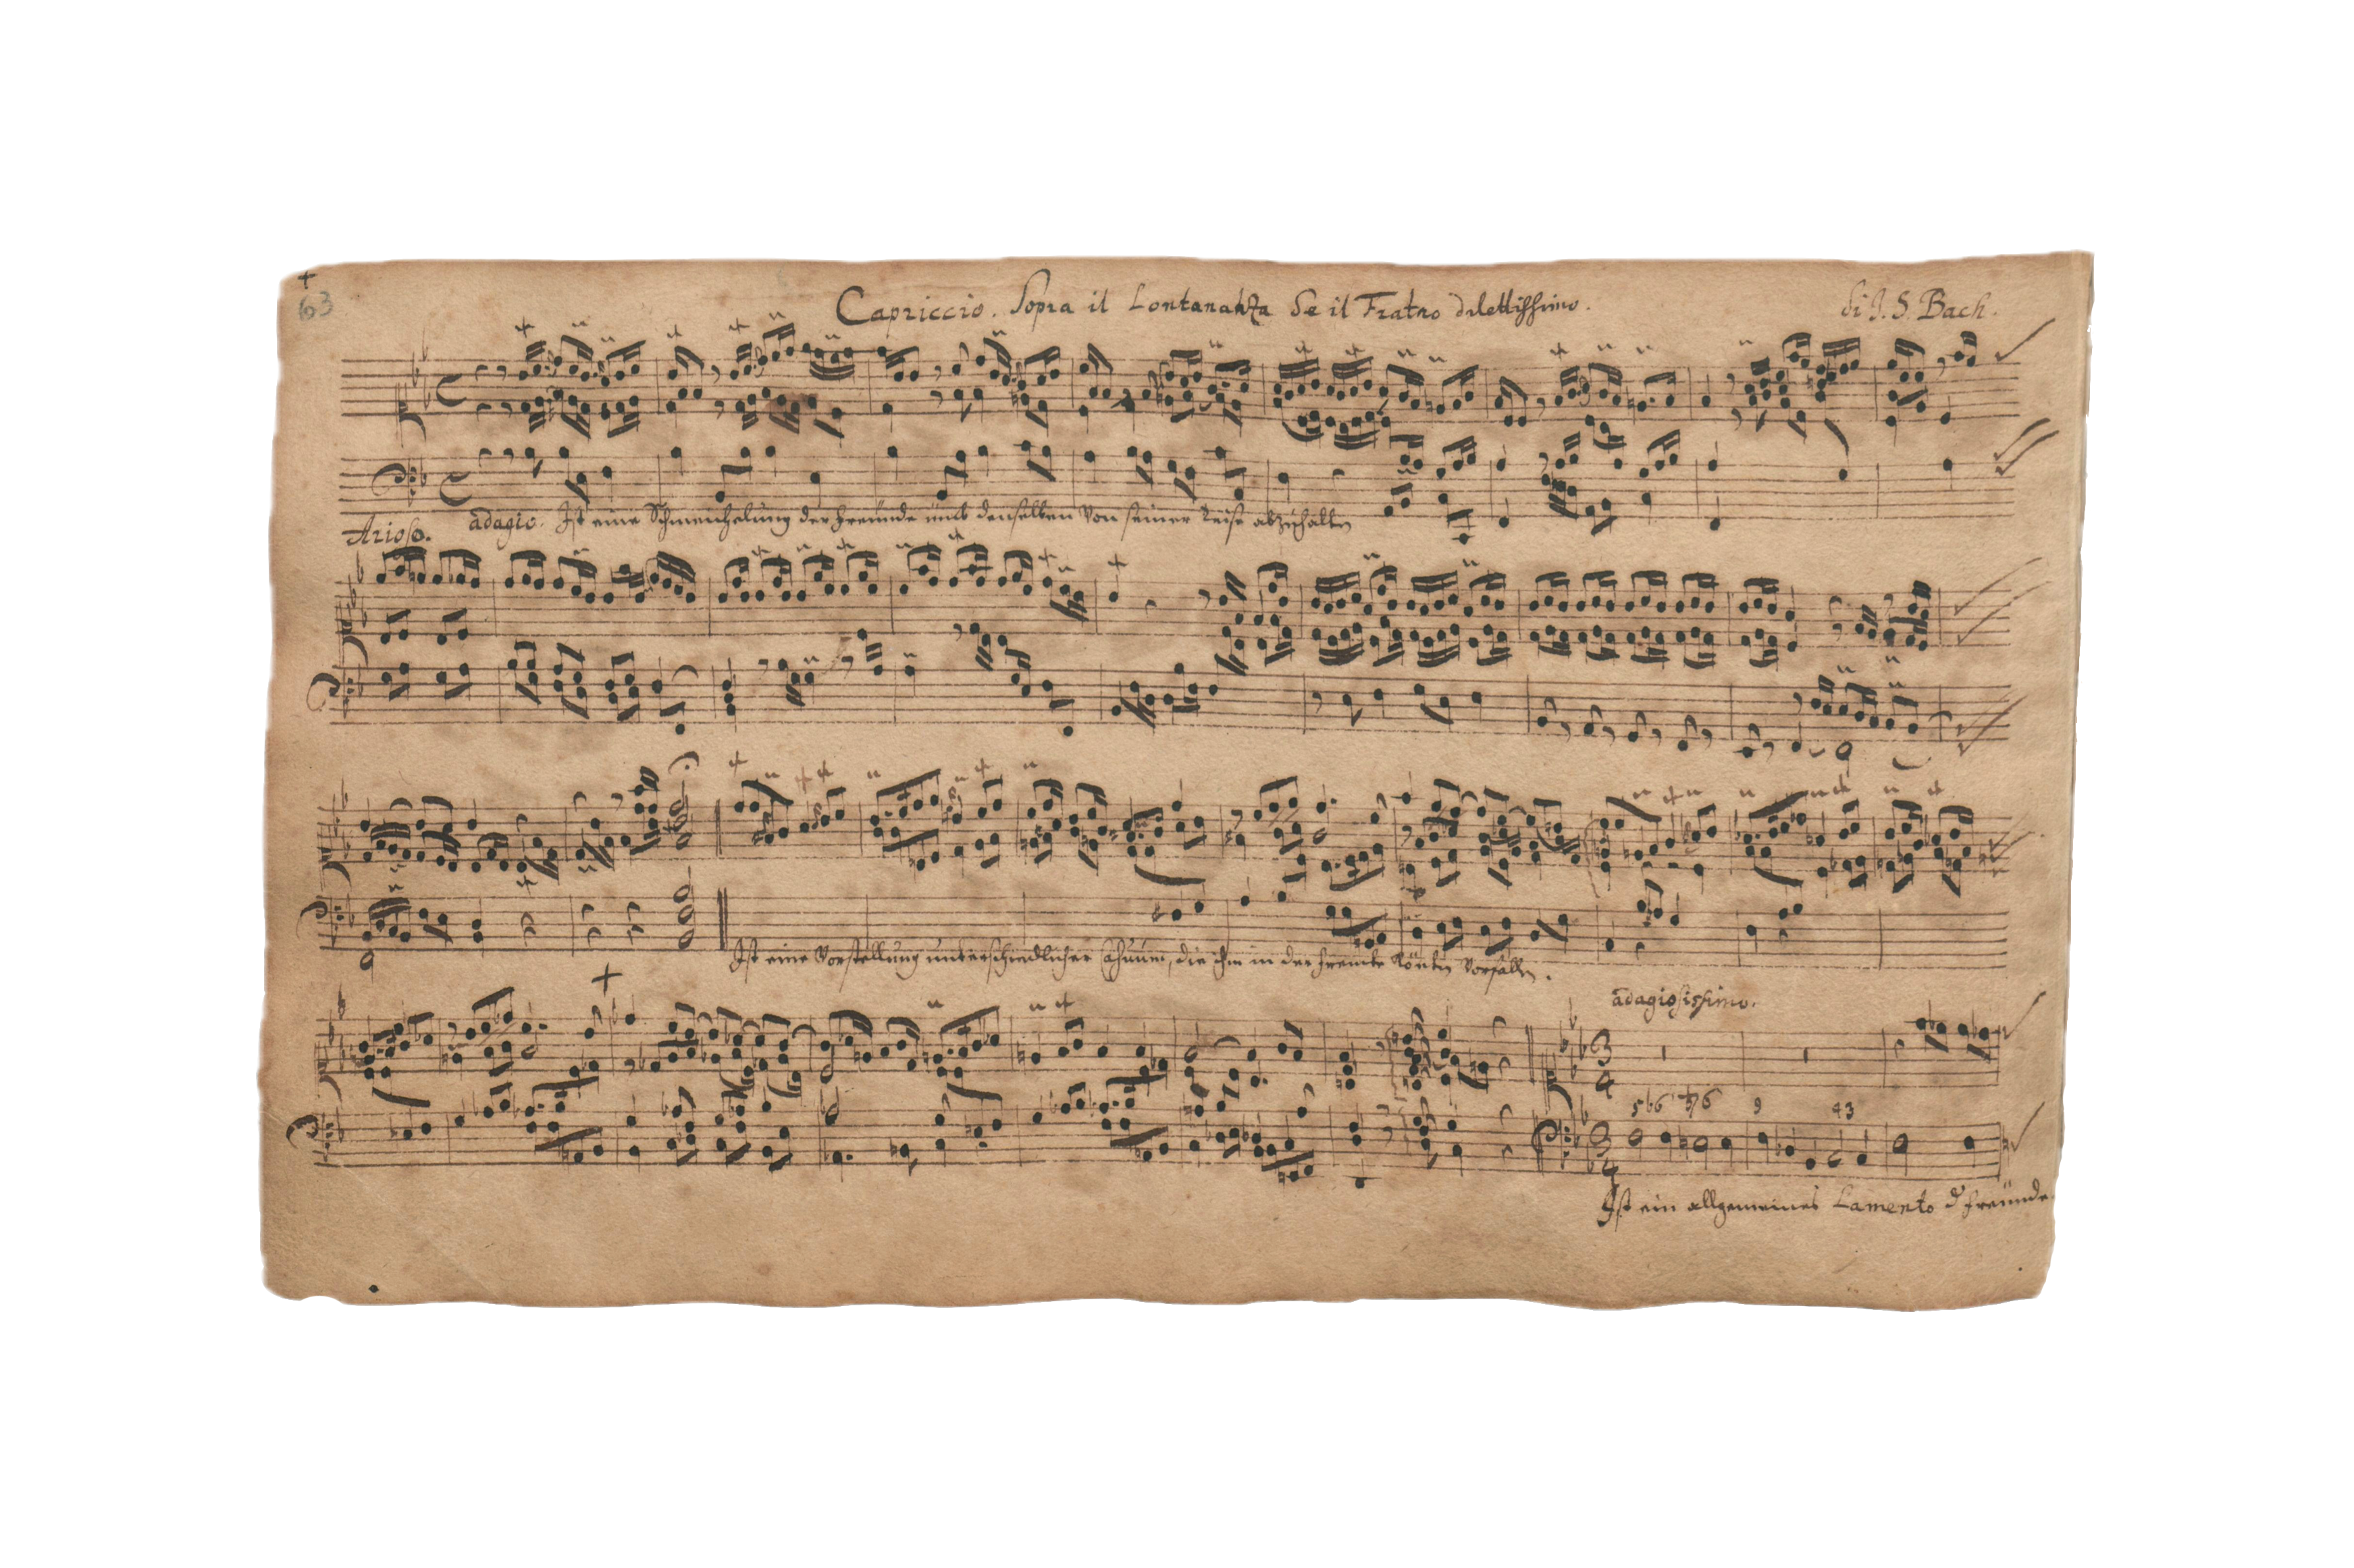 63
Capriccio. Sopra il Lontananza de il Fratro dilettissimo. di J. S. Bach.
Arioso. adagio. Ist eine Schmeichelung der Freunde umb denselben von seiner Reise abzuhalten
Ist eine Vorstellung unterschiedlicher Casuum, die ihm in der Frembde könten vorfallen.
adagiosissimo.
3
4
5 b6 ♮7 6 9 4 3
3
4
Ist ein allgemeines Lamento d Freunde.